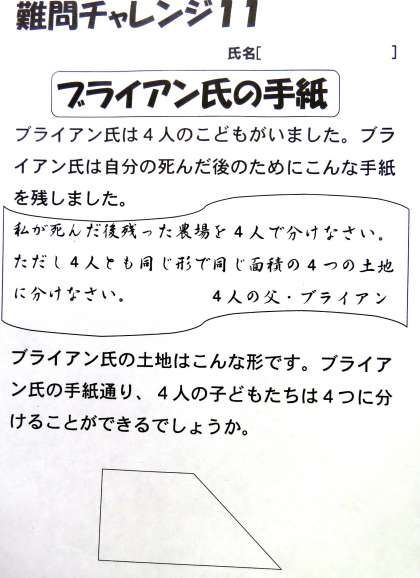 難問チャレンジ11
氏名[ ]
ブライアン氏の手紙
ブライアン氏は4人のこどもがいました。ブラ
イアン氏は自分の死んだ後のためにこんな手紙
を残しました。
私が死んだ後残った農場を4人で分けなさい。
ただし4人とも同じ形で同じ面積の4つの土地
に分けなさい。 4人の父・ブライアン
ブライアン氏の土地はこんな形です。ブライア
ン氏の手紙通り、4人の子どもたちは4つに分
けることができるでしょうか。